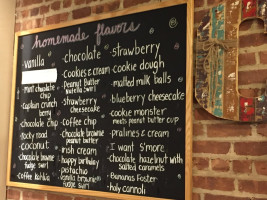 homemade flavors
vanilla
mint chocolate
chip
captain crunch
berry
chocolate chip
rocky road
coconut
chocolate brownie
fudge swirl
coffee
chocolate
cookies & cream
Peanut Butter
Nutella swirl
strawberry
strawberry
cheesecake
coffee chip
chocolate brownie
peanut butter
irish cream
happy birthday
pistachio
vanilla brownie
fudge swirl
strawberry
cookie dough
malted milk balls
blueberry cheesecake
cookie monster
meets peanut butter cup
pralines & cream
I want s'more
chocolate hazelnut with
salted caramel
Bananas Foster
holy cannoli